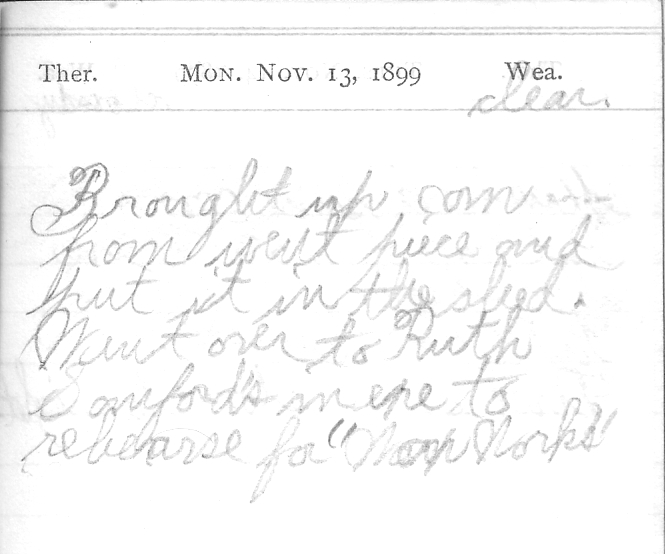 Ther. MON. NOV. 13, 1899 Wea.
clear.
Brought up corn
from west piece and
put it in the shed.
Went over to Ruth
Sanford's in eve to
rehearse for "